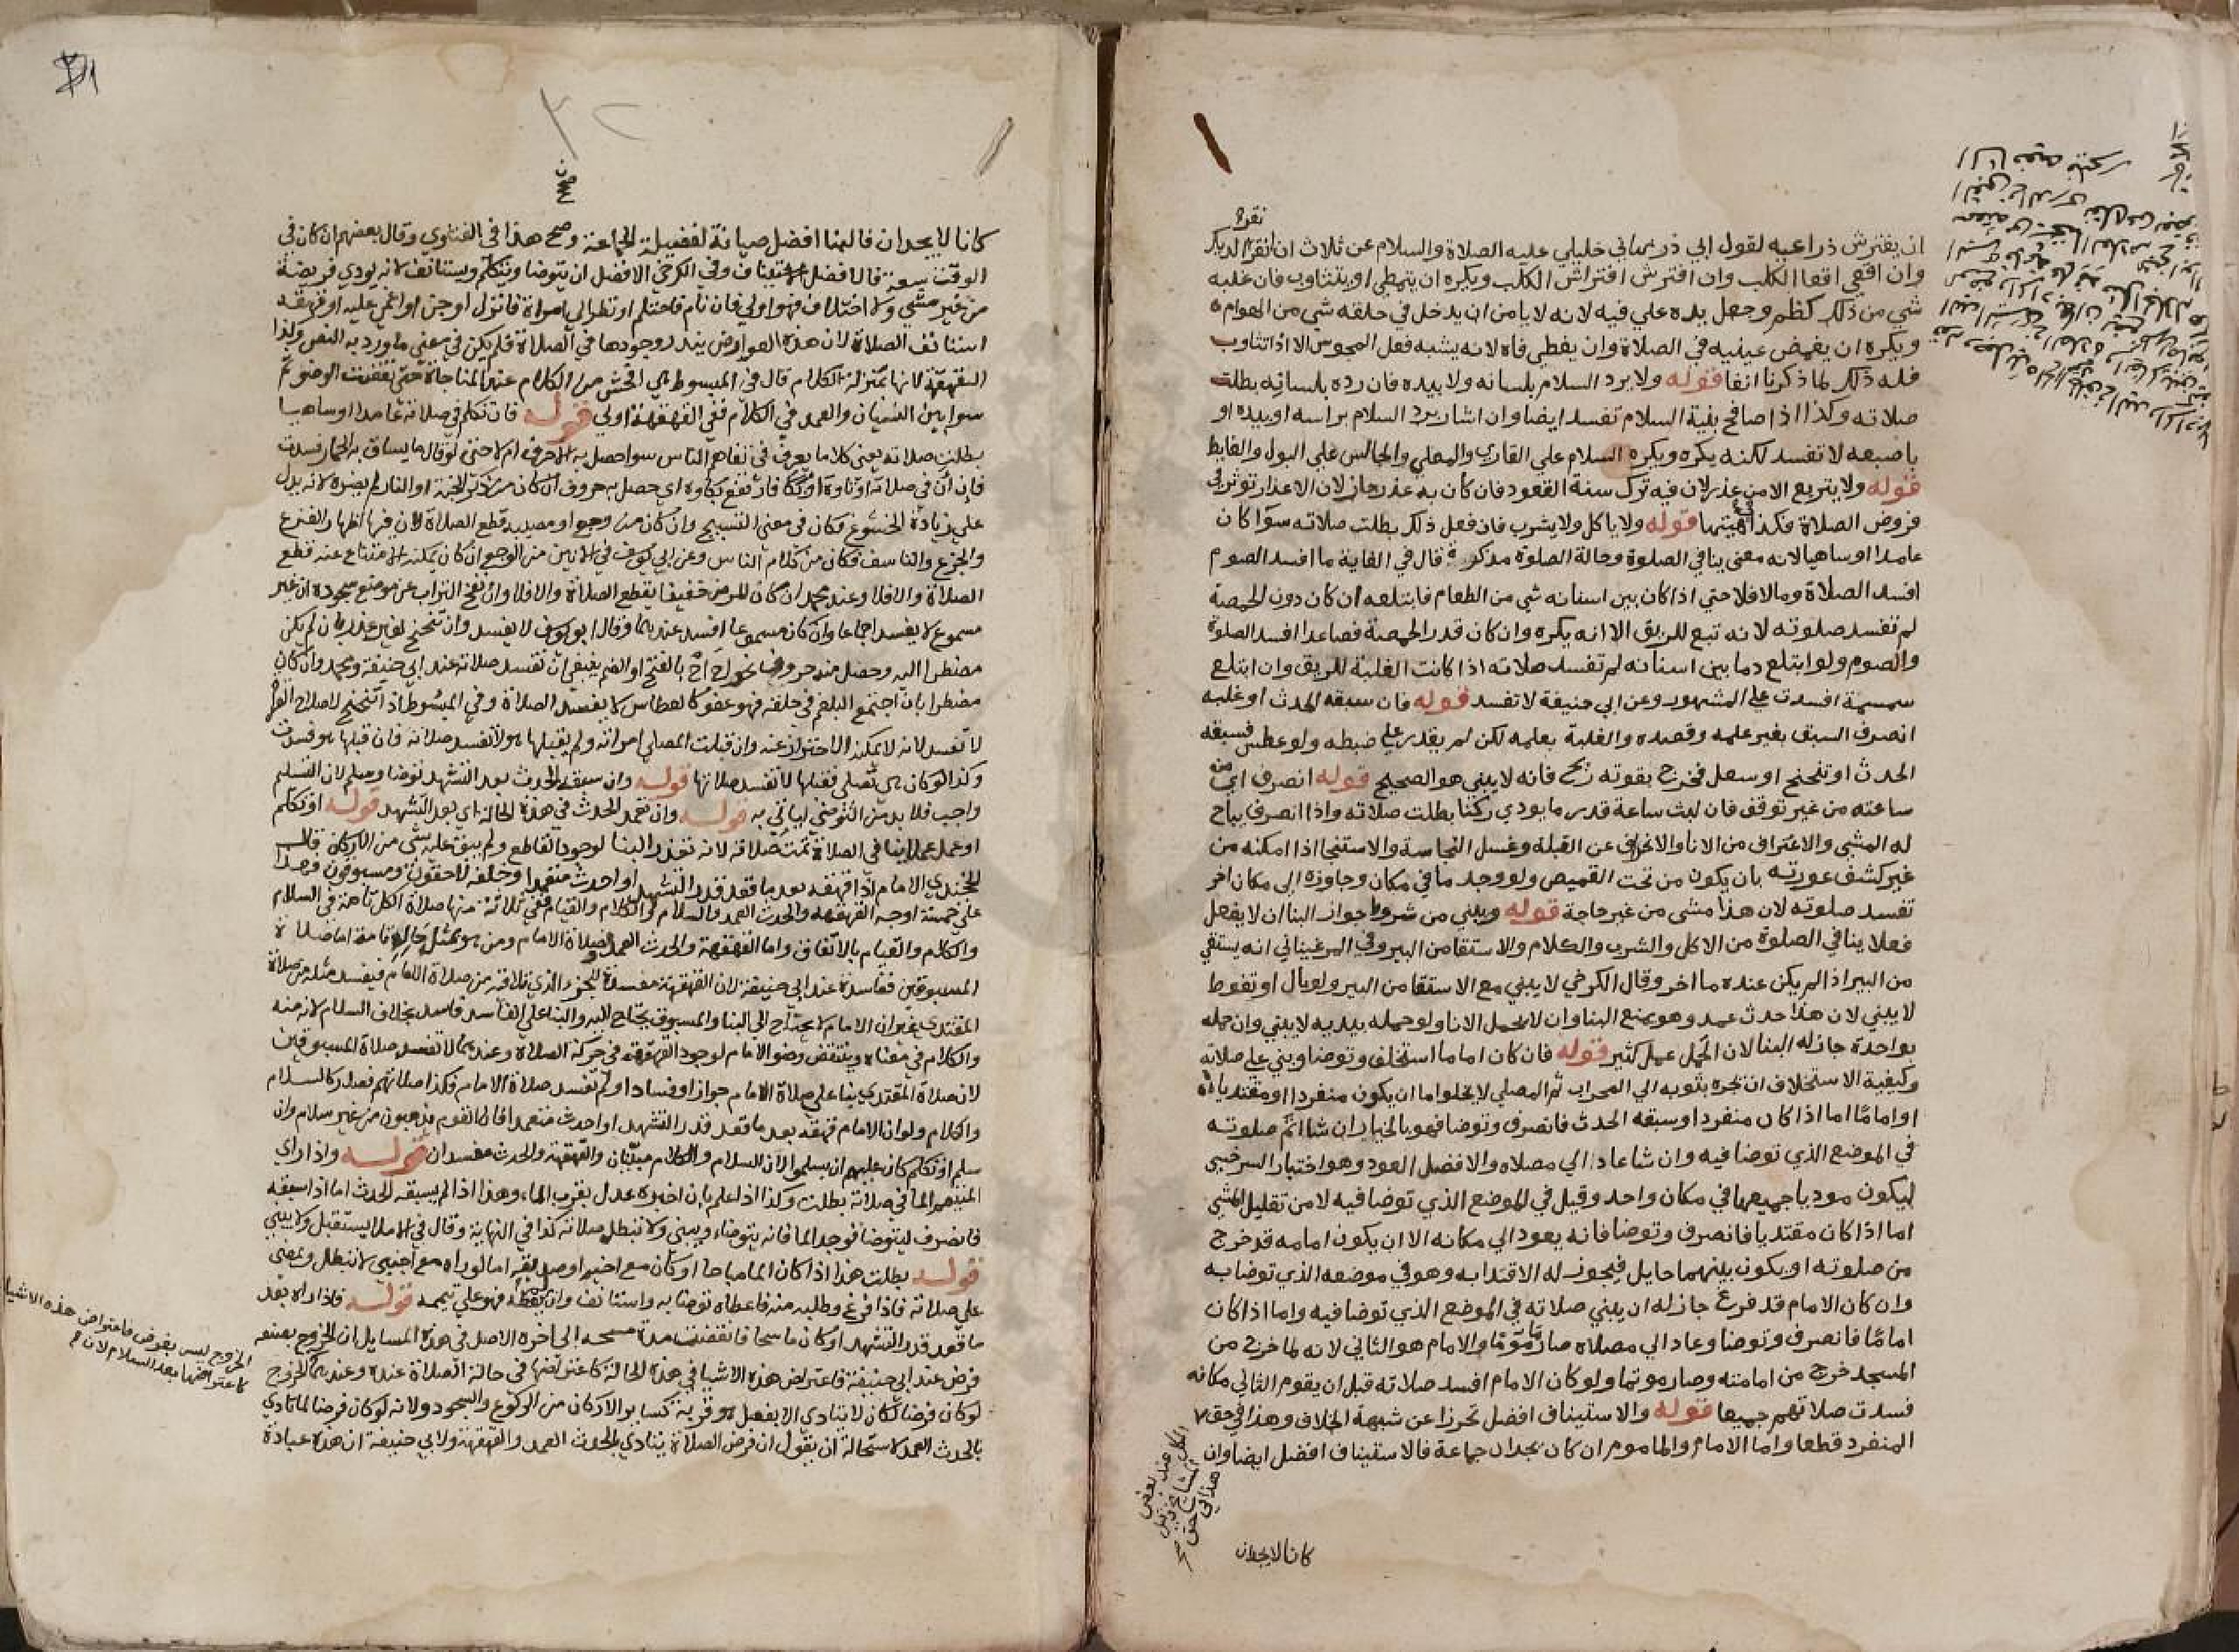 ان يفترش ذراعيه لقول ابي ذر نهاني خليلي عليه الصلاة والسلام عن ثلاث ان انقر الديك
نقرة
وان اقعي اقعا الكلب وان افترش افتراش الكلب ويكره ان يتمطي او يتثاوب فان غلبه
شي من ذلك كظم وجعل يده علي فيه لانه لا يامن ان يدخل في حلقه شي من الهوام
ويكره ان يغمض عينيه في الصلاة وان يغطي فاه لانه يشبه فعل المجوس الا اذا تثاوب
فله ذلك لما ذكرنا انفا قوله ولا يرد السلام بلسانه ولا بيده فان رده بلسانه بطلت
صلاته وكذا اذا صافح بنية السلام تفسد ايضا وان اشار برد السلام براسه او بيده او
باصبعه لا تفسد لكنه يكره ويكره السلام علي القاري والمصلي والجالس علي البول والغايط
قوله ولا يتربع الا من عذر لان فيه ترك سنة القعود فان كان به عذر جاز لان الاعذار توثر في
فروض الصلاة فكذا في هيئتها قوله ولا ياكل ولا يشرب فان فعل ذلك بطلت صلاته سوا كان
عامدا او ساهيا لانه معني ينافي الصلوة وحالة الصلوة مذكرة قال في الغاية ما افسد الصوم
افسد الصلاة ومالا فلا حتي اذا كان بين اسنانه شي من الطعام فابتلعه ان كان دون الحمصة
لم تفسد صلوته لانه تبع للريق الا انه يكره وان كان قدر الحمصة فصاعدا افسد الصلوة
والصوم ولو ابتلع دما بين اسنانه لم تفسد صلاته اذا كانت الغلبة للريق وان ابتلع
سمسمة افسدت علي المشهور وعن ابي حنيفة لا تفسد قوله فان سبقه الحدث او غلبه
انصرف السبق بغير علمه وقصده والغلبة بعلمه لكن لم يقدر علي ضبطه ولو عطس فسبقه
الحدث او تنحنح او سعل فخرج بقوته ريح فانه لا يبني هو الصحيح قوله انصرف اي من
ساعته من غير توقف فان لبث ساعة قدر ما يودي ركنا بطلت صلاته واذا انصرف يباح
له المشي والاغتراف من الانا والانحراف عن القبلة وغسل النجاسة والاستنجا اذا امكنه من
غير كشف عورته بان يكون من تحت القميص ولو وجد ما في مكان وجاوزه الي مكان اخر
تفسد صلوته لان هذا مشي من غير حاجة قوله ويبني من شروط جواز البنا ان لا يفعل
فعلا ينافي الصلوة من الاكل والشرب والكلام والاستقا من البير وفي المرغيناني انه يستقي
من البير اذا لم يكن عنده ما اخر وقال الكرخي لا يبني مع الاستقا من البير ولو بال او تغوط
لا يبني لان هذا حدث عمد وهو يمنع البنا وان لا يحمل الانا ولو حمله بيديه لا يبني وان حمله
بواحدة جاز له البنا لان الحمل عمل كثير قوله فان كان اماما استخلف وتوضا وبني علي صلاته
وكيفية الاستخلاف ان يجره بثوبه الي المحراب ثم المصلي لا يخلوا اما ان يكون منفردا او مقتديا
او اماما اما اذا كان منفردا وسبقه الحدث فانصرف وتوضا فهو بالخيار ان شا اتم صلوته
في الموضع الذي توضا فيه وان شا عاد الي مصلاه والافضل العود وهو اختيار السرخسي
ليكون موديا جميعها في مكان واحد وقيل في الموضع الذي توضا فيه لا من تقليل المشي
اما اذا كان مقتديا فانصرف وتوضا فانه يعود الي مكانه الا ان يكون امامه قد خرج
من صلوته او يكون بينهما حايل فيجوز له الاقتدا به وهو في موضعه الذي توضا به
وان كان الامام قد فرغ جاز له ان يبني صلاته في الموضع الذي توضا فيه واما اذا كان
اماما فانصرف وتوضا وعاد الي مصلاه صار موتما والامام هو الثاني لانه لما خرج من
المسجد خرج من امامته وصار موتما ولو كان الامام افسد صلاته قبل ان يقوم الثاني مكانه
فسدت صلاتهم جميعا قوله والاستيناف افضل تحرزا عن شبهة الخلاف وهذا في حق
المنفرد قطعا واما الامام والماموم ان كان يجدان جماعة فالاستيناف افضل ايضا وان
الكل عند بعض
المشايخ وقيل
هذا في حق
كانا لا يجدان
كانا لا يجدان فالبنا افضل صيانة لفضيلة الجماعة وصحح هذا في الفتاوي وقال بعضهم ان كان في
الوقت سعة فالافضل الاستيناف وفي الكرخي الافضل ان يتوضا ويتكلم ويستانف لانه يودي فريضة
من غير مشي ولا اختلاف فهو اولي فان نام فاحتلم او نظر الي امراة فانزل او جن او اغمي عليه او قهقه
استانف الصلاة لان هذه العوارض يندر وجودها في الصلاة فلم يكن في معني ما ورد به النص وكذا
القهقهة لانها بمنزلة الكلام قال في المبسوط هي افحش من الكلام عند المناجاة حتي نقضت الوضو ثم
سوا بين النسيان والعمد في الكلام ففي القهقهة اولي قوله فان تكلم في صلاته عامدا او ساهيا
بطلت صلاته يعني كلاما يعرف في تفاهم الناس سوا حصل به الاحرف ام لا حتي لو قال ما يساق به الحمار فسدت
فان ان في صلاته او تاوه او بكا فارتفع بكاوه اي حصل به حروف ان كان من ذكر الجنة او النار لم يضره لانه يدل
علي زيادة الخشوع فكان في معني التسبيح وان كان من وجع او مصيبة قطع الصلاة لان فيها اظهار الفزع
والجزع والتاسف فكان من كلام الناس وعن ابي يوسف في الانين من الوجع ان كان يمكنه الامتناع عنه قطع
الصلاة والا فلا وعند محمد ان كان المرض خفيفا يقطع الصلاة والا فلا وان نفخ التراب عن موضع سجوده ان غير
مسموع لا يفسد اجماعا وان كان مسموعا افسد عندهما وقال ابو يوسف لا يفسد وان تنحنح لغير عذر بان لم يكن
مضطرا اليه وحصل منه حروف نحو اح اح بالفتح او الضم ينبغي ان تفسد صلاته عند ابي حنيفة ومحمد وان كان
مضطرا بان اجتمع البلغم في حلقه فهو عفو كالعطاس لا يفسد الصلاة وفي المبسوط اذا تنحنح لاصلاح القراة
لا تفسد لانه لا يمكنه الاحتراز عنه وان قبلت المصلي امراته ولم يقبلها هو لا تفسد صلاته فان قبلها هو فسدت
وكذا لو كان هي تصلي فقبلها لا تفسد صلاتها قوله وان سبقه الحدث بعد التشهد توضا وسلم لان التسليم
واجب فلا بد من التوضي لياتي به قوله وان تعمد الحدث في هذه الحالة اي بعد التشهد قوله او تكلم
او عمل عملا ينافي الصلاة تمت صلاته لانه تعذر البنا لوجود القاطع ولم يبق عليه شي من الاركان قال
الخجندي الامام اذا قهقه بعد ما قعد قدر التشهد او احدث متعمدا وخلفه لاحقون ومسبوقون فهذا
علي خمسة اوجه القهقهة والحدث العمد والسلام والكلام والقيام ففي ثلاثة منها صلاة الكل تامة في السلام
والكلام والقيام بالاتفاق واما القهقهة والحدث العمد فصلاة الامام ومن هو بمثل حاله تامة اما صلاة
المسبوقين ففاسدة عند ابي حنيفة لان القهقهة مفسدة للجزء الذي تلاقيه من صلاة الامام فيفسد مثله من صلاة
المقتدي غير ان الامام لا يحتاج الي البنا والمسبوق يحتاج اليه والبنا علي الفاسد فاسد بخلاف السلام لانه منه
والكلام في معناه وينتقض وضو الامام لوجود القهقهة في حركة الصلاة وعندهما لا تفسد صلاة المسبوقين
لان صلاة المقتدي بنا علي صلاة الامام جوازا وفسادا ولم تفسد صلاة الامام فكذا صلاتهم فصار كالسلام
والكلام ولو ان الامام قهقه بعد ما قعد قدر التشهد او احدث متعمدا فان القوم يذهبون من غير سلام وان
سلم او تكلم كان عليهم ان يسلموا لان السلام والكلام مبتتان والقهقهة والحدث مفسدان قوله واذا راي
المتيمم الما في صلاته بطلت وكذا اذا علم بان اخبره عدل بقرب الماء وهذا اذا لم يسبقه الحدث اما اذا سبقه
فانصرف ليتوضا فوجد الما فانه يتوضاء ويبني ولا تبطل صلاته كذا في النهاية وقال في الاملا يستقبل ولا يبني
قوله بطلت هذا اذا كان الما مباحا او كان مع اخيه او صديقه اما لو راه مع اجنبي لا تبطل ويمضي
علي صلاته فاذا فرغ وطلبه منه فاعطاه توضا به واستانف وان لم يعطه فهو علي تيممه قوله فاذا راه بعد
ما قعد قدر التشهد او كان ماسحا فانقضت مدة مسحه الي اخره الاصل في هذه المسايل ان الخروج بصنعه
فرض عند ابي حنيفة فاعتراض هذه الاشيا في هذه الحالة كاعتراضها في حالة الصلاة عنده وعندهما الخروج
لو كان فرضا لكان لا يتادي الا بفعل هو قربة كساير الاركان من الركوع والسجود ولانه لو كان فرضا لما تادي
بالحدث العمد لاستحالة ان يقول ان فرض الصلاة يتادي بالحدث العمد والقهقهة ولابي حنيفة ان هذه عبادة
الخروج ليس بفرض فاعتراض هذه الاشيا
كاعتراضها بعد السلام لان